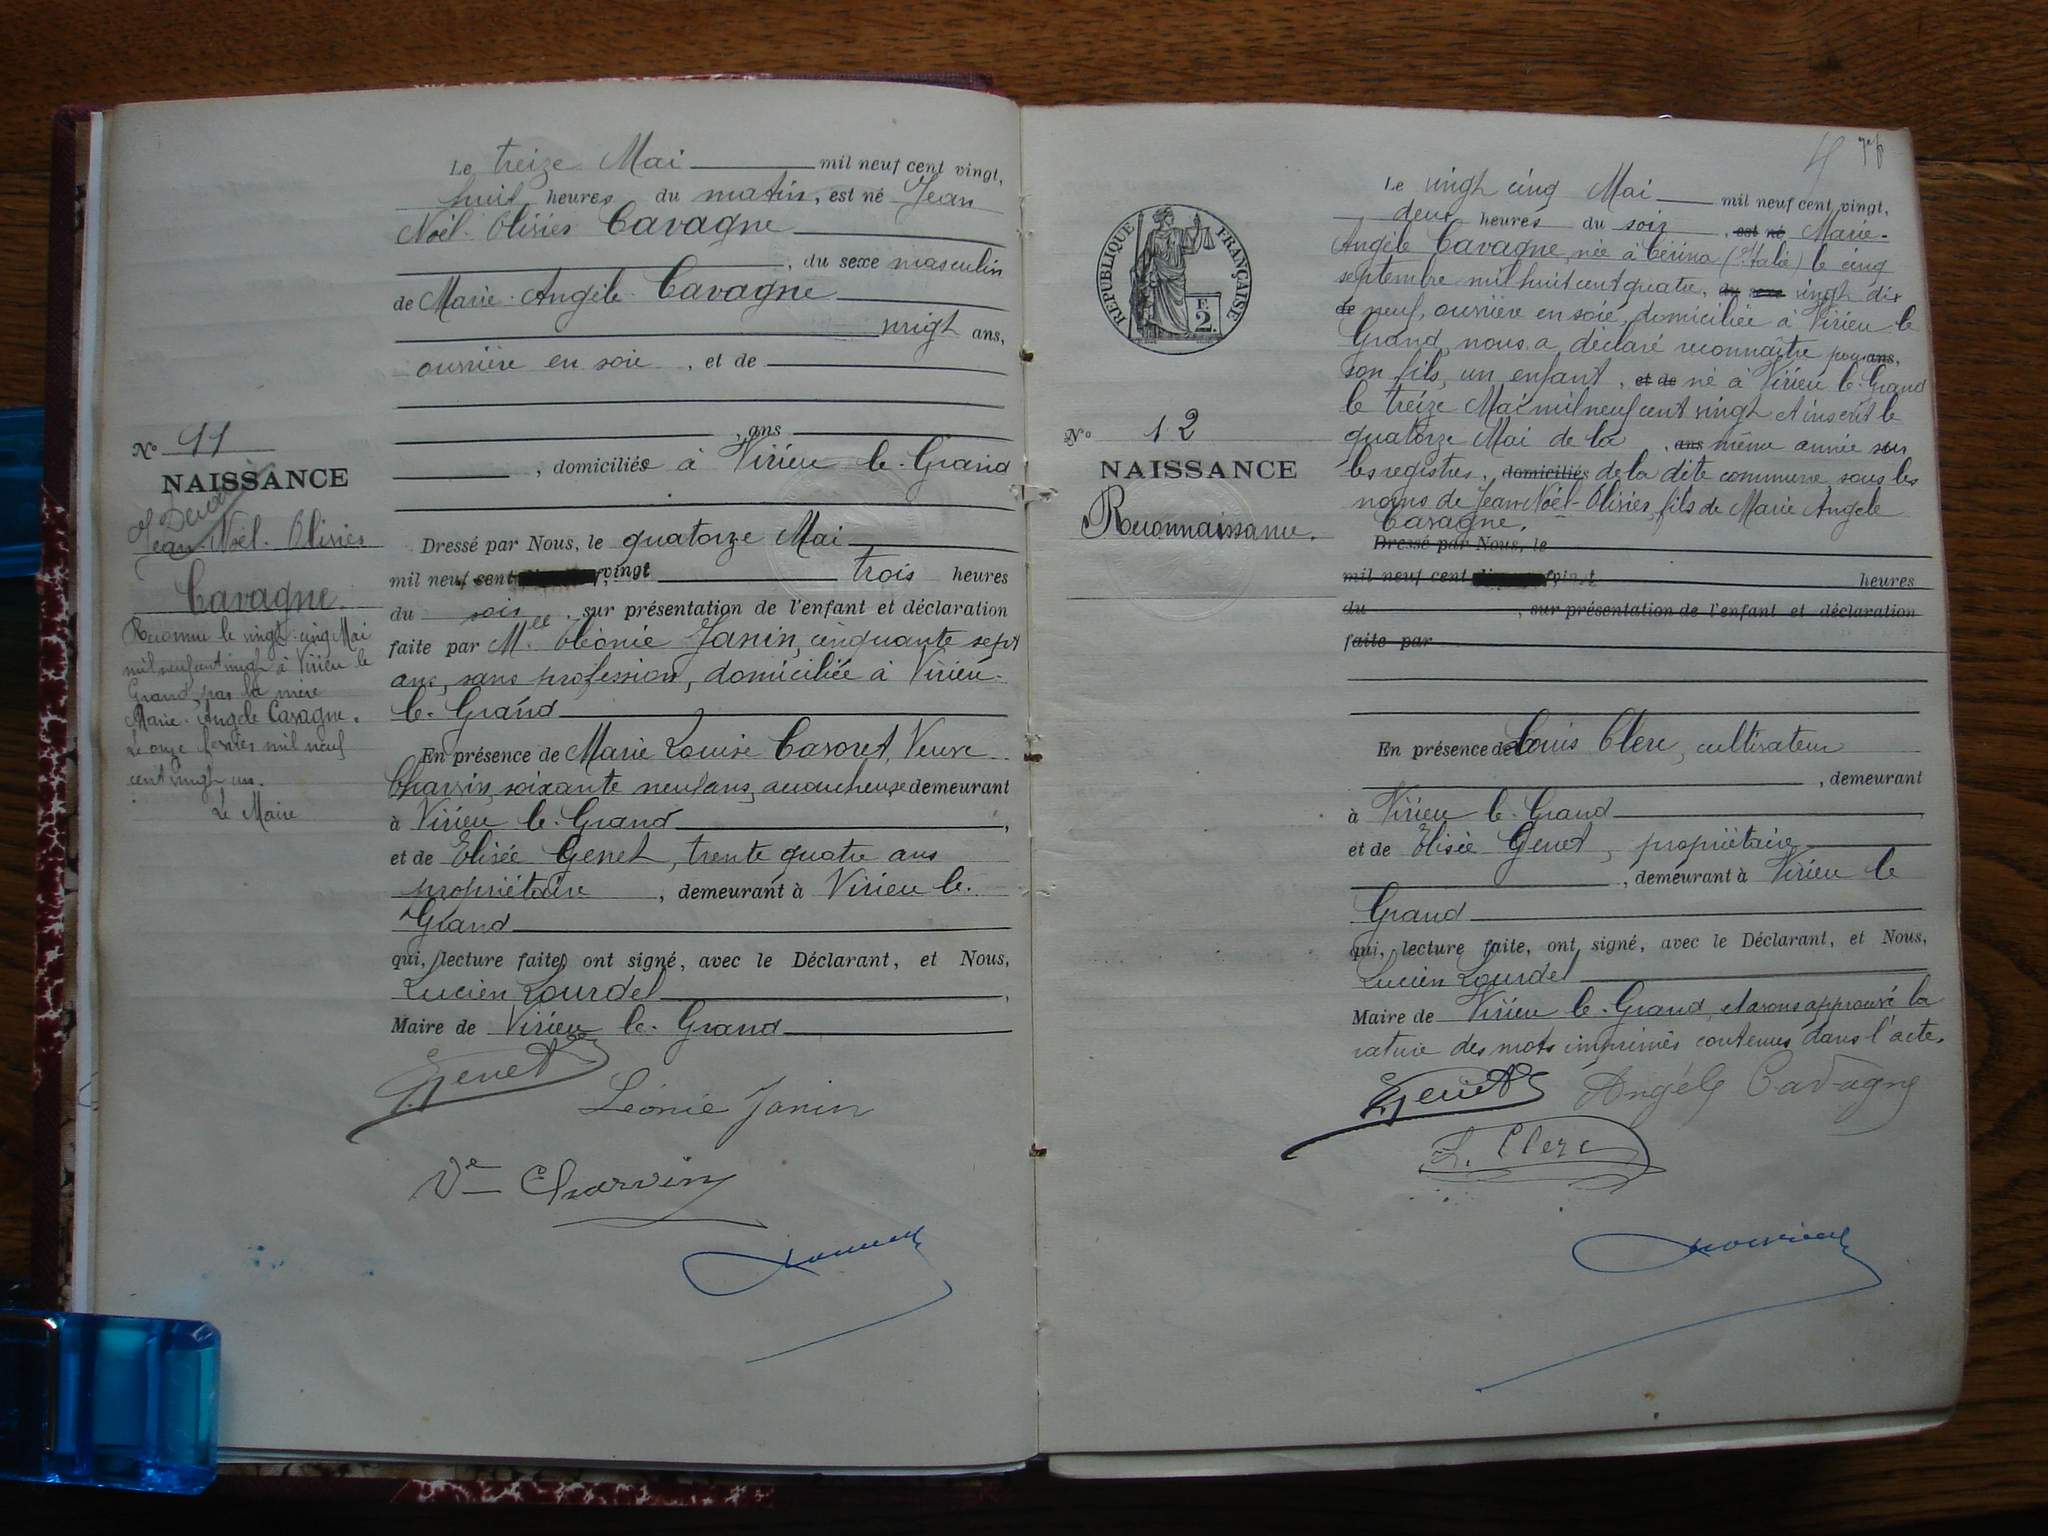 Le treize Mai mil neuf cent vingt,
huit heures du matin, est né Jean
Noël Olivier Cavagne
, du sexe masculin
de Marie-Angèle Cavagne
vingt ans,
ouvrière en soie, et de
, ans
, domiciliés à Virieu le-Grand
N° 11
NAISSANCE
Jean-Noël-Olivier
Cavagne.
Reconnu le vingt-cinq Mai
mil neuf cent vingt à Virieu le
Grand, par la mère
Marie-Angèle Cavagne.
Le onze février mil neuf
cent vingt un.
Le Maire
Dressé par Nous, le quatorze Mai
mil neuf cent vingt trois heures
du soir, sur présentation de l'enfant et déclaration
faite par Mlle Léonie Janin, cinquante sept
ans, sans profession, domiciliée à Virieu-
le-Grand
En présence de Marie Louise Veuve
Charvin, soixante neuf ans, accoucheuse demeurant
à Virieu le-Grand,
et de Elisée Genet, trente quatre ans
propriétaire, demeurant à Virieu le-
Grand
qui, lecture faite, ont signé, avec le Déclarant, et Nous,
Lucien Lourdel,
Maire de Virieu le-Grand
Genet
Léonie Janin
Ve Charvin
Le vingt cinq Mai mil neuf cent vingt,
deux heures du soir, est né Marie-
Angèle Cavagne, née à (Italie) le cinq
septembre mil huit cent quatre, du sexe vingt dix
de neuf, ouvrière en soie, domiciliée à Virieu-le
Grand, nous a déclaré reconnaître pour ans,
son fils, un enfant, et de né à Virieu le-Grand
le treize Mai mil neuf cent vingt et inscrit le
quatorze Mai de la, ans même année sur
les registres, domiciliés de la dite commune sous les
noms de Jean-Noël-Olivier, fils de Marie Angèle
Cavagne.
RÉPUBLIQUE FRANÇAISE
F.
2.
N° 12
NAISSANCE
Reconnaissance.
Dressé par Nous, le
mil neuf cent vingt heures
du , sur présentation de l'enfant et déclaration
faite par
En présence de Louis Clerc, cultivateur
, demeurant
à Virieu le-Grand
et de Elisée Genet, propriétaire
, demeurant à Virieu le
Grand
qui, lecture faite, ont signé, avec le Déclarant, et Nous,
Lucien Lourdel
Maire de Virieu le-Grand, et avons approuvé la
rature des mots imprimés contenus dans l'acte.
Genet Angèle Cavagne
L. Clerc